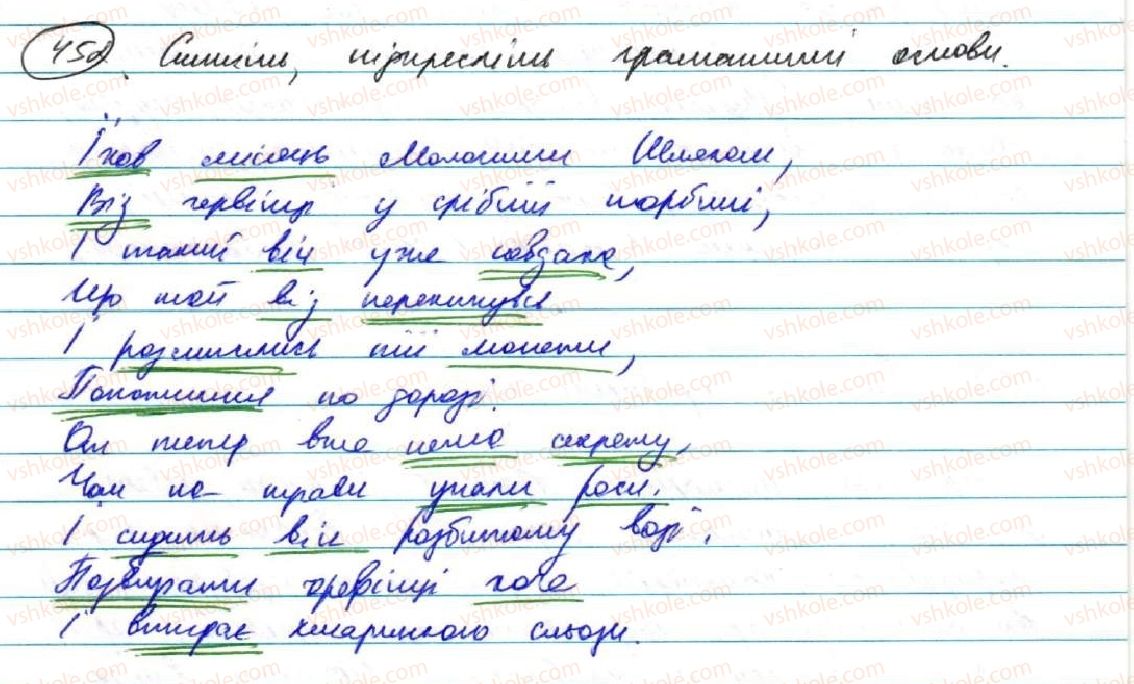 452. Спишіть, підкресліть граматичні основи.
Їхав місяць Молочним Шляхом,
Віз червінці у срібній торбині,
І такий він уже невдаха,
Що той віз перекинувся
І розсипались тії монети,
Покотилися по дорозі.
От тепер вже нема секрету,
Чом на трави упали роси.
І сидить він розбитому возі,
Позбирати червінці хоче
І витирає хмаринкою сльози.